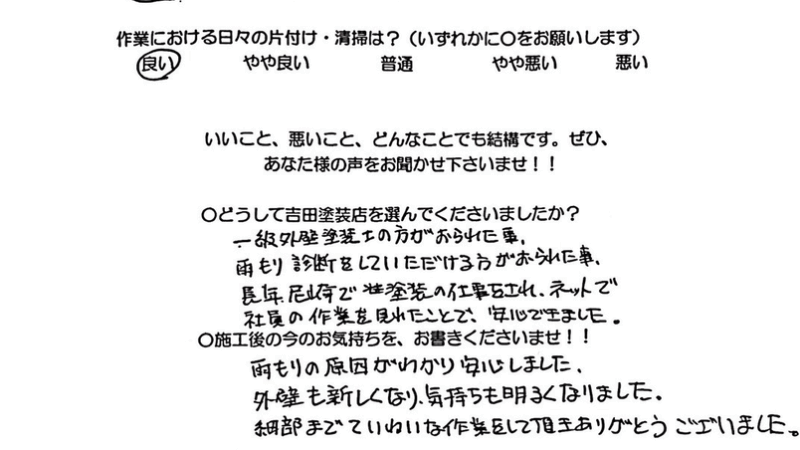 作業における日々の片付け・清掃は？（いずれかに〇をお願いします）
良い やや良い 普通 やや悪い 悪い
いいこと、悪いこと、どんなことでも結構です。ぜひ、
あなた様の声をお聞かせ下さいませ！！
〇どうして吉田塗装店を選んでくださいましたか？
一級外壁塗装士の方がおられた事、
雨もり診断をしていただける方がおられた事、
長年、尼崎で 塗装の仕事をされ、ネットで
社員の作業を見れたことで、安心できました。
〇施工後の今のお気持ちを、お書きくださいませ！！
雨もりの原因がわかり安心しました、
外壁も新しくなり、気持ちも明るくなりました。
細部までていねいな作業をして頂きありがとうございました。